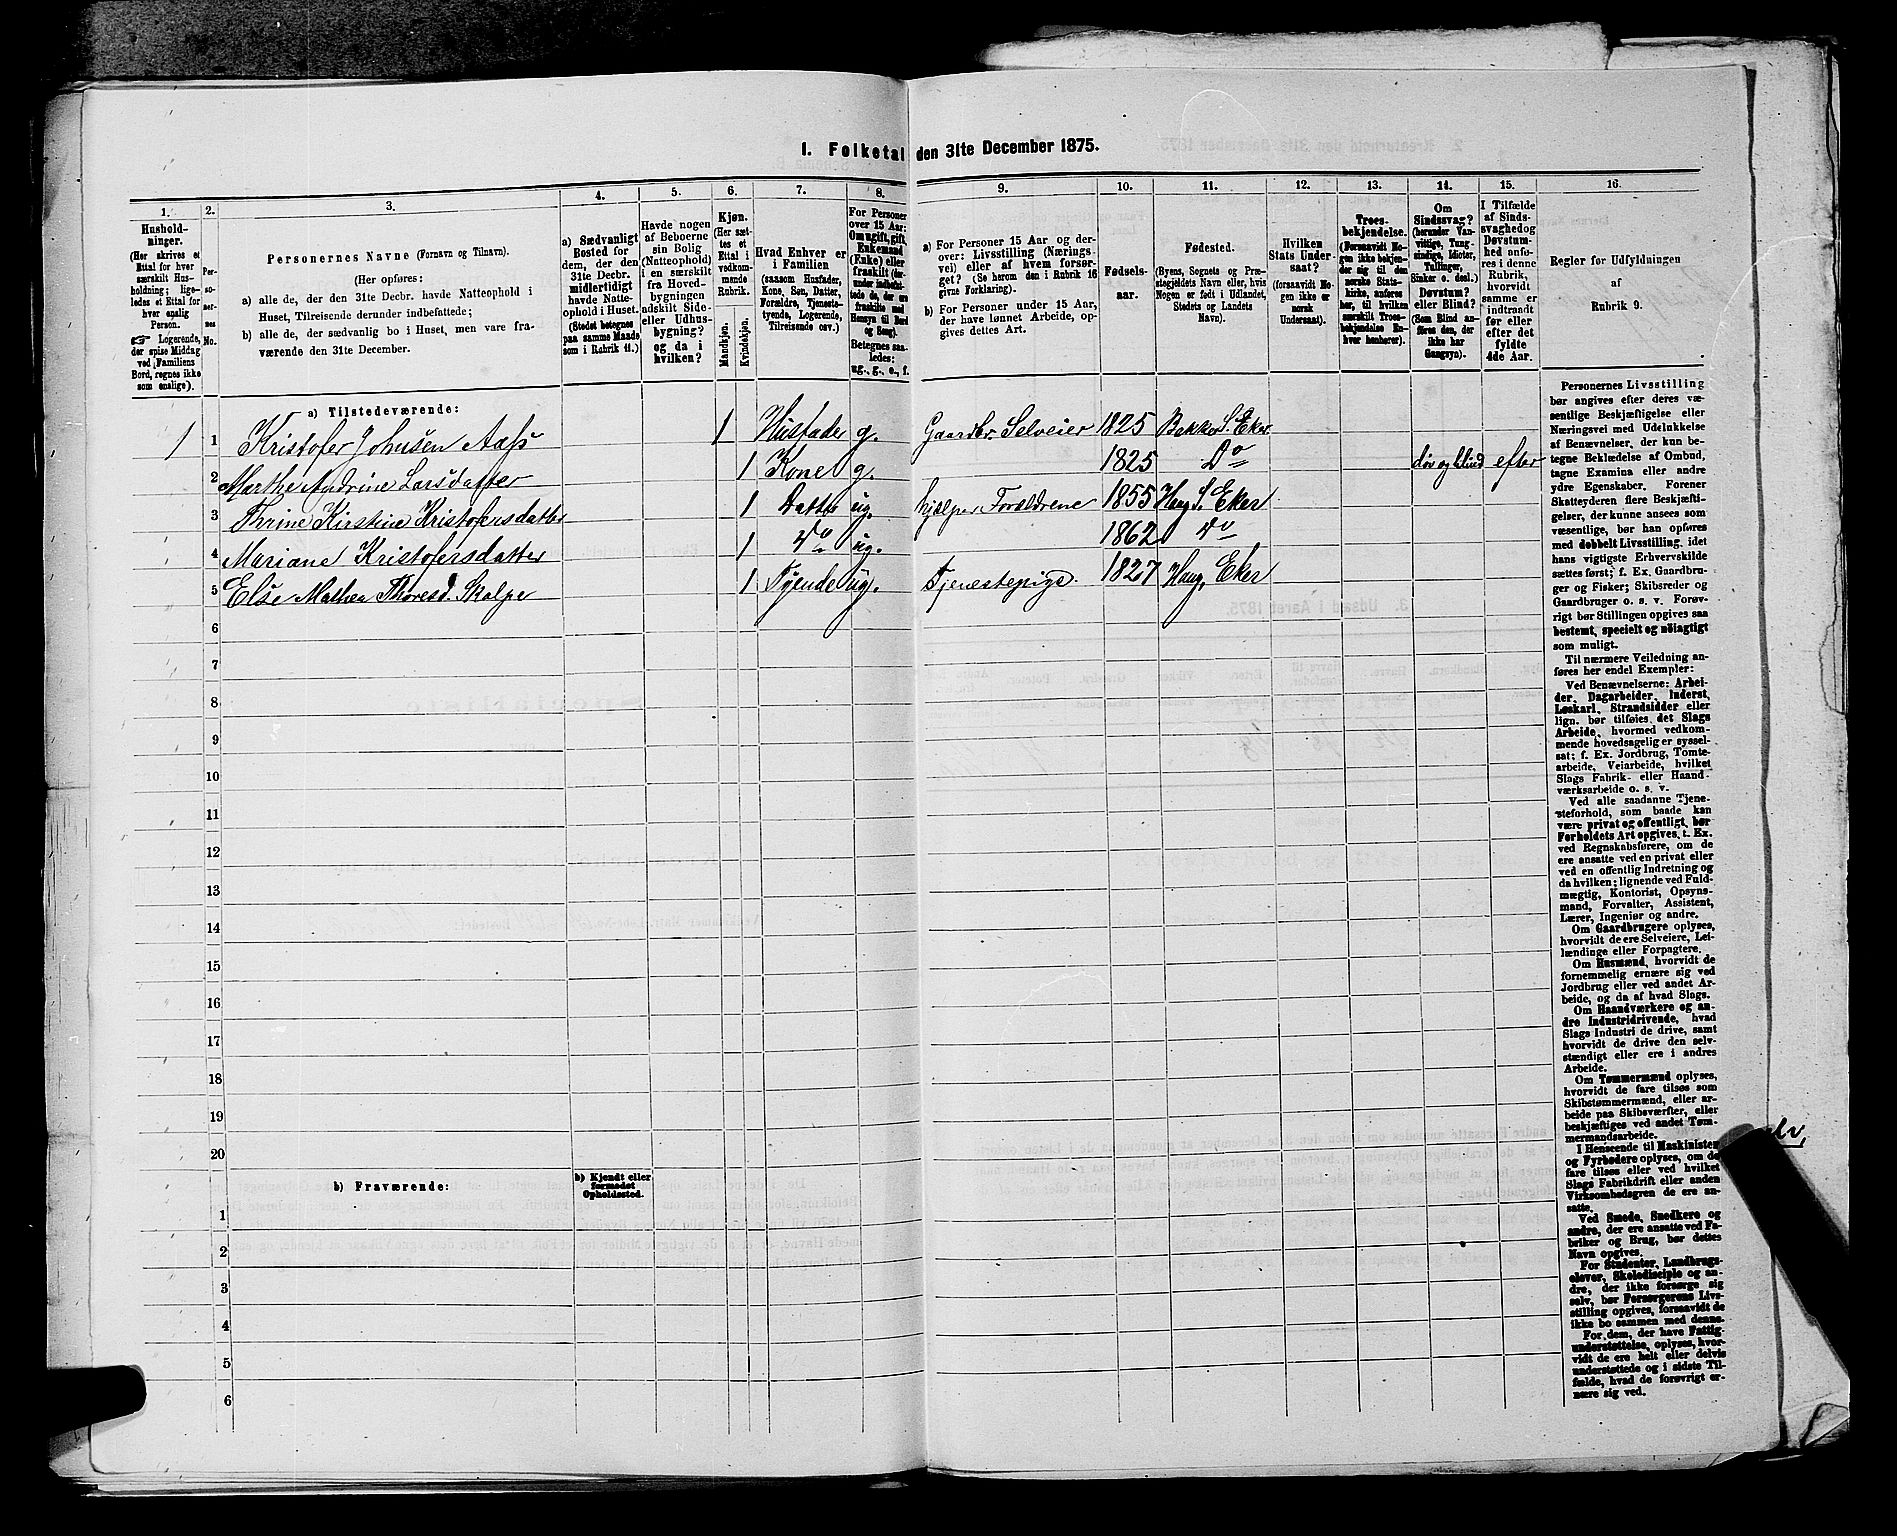 1. Folketal den 31te December 1875.
1. 2. 3. 4. 5. 6. 7. 8. 9. 10. 11. 12. 13. 14. 15. 16.
Hushold-
ninger.
(Her skrives et
Ettal for hver
særskilt Hus-
holdning; lige-
ledes et Ettal for
hver enslig
Person.
☞ Logerende,
der spise Middag
ved Familiens
Bord, regnes ikke
som enslige).
Per-
so-
ner-
nes
No.
Personernes Navne (Fornavn og Tilnavn).
(Her opføres:
a) alle de, der den 31te Decbr. havde Natteophold i
Huset, Tilreisende derunder indbefattede;
b) alle de, der sædvanlig bo i Huset, men vare fra-
værende den 31te December.
a) Sædvanligt
Bosted for
dem, der den
31te Decbr.
midlertidigt
havde Natte-
ophold i Huset.
(Stedet betegnes
paa samme Maade
som i Rubrik 11.)
Havde nogen
af Beboerne
sin Bolig
(Natteophold)
i en særskilt
fra Hoved-
bygningen
adskilt Side-
eller Udhus-
bygning?
og da i
hvilken?
Kjøn.
(Her sæt-
tes et
Ettal i
vedkom-
mende
Rubrik.
Mandkjøn.
Kvindekjøn.
Hvad Enhver er
i Familien
(saasom Husfader,
Kone, Søn, Datter,
Forældre, Tjeneste-
tyende, Logerende,
Tilreisende osv.)
For Personer
over 15 Aar:
Om ugift, gift,
Enkemand
(Enke) eller
fraskilt (der-
under indbefat-
tede de, der ere
fraskilte med
Hensyn til Bord
og Seng).
Betegnes saa-
ledes:
ug., g., e., f.
a) For Personer 15 Aar og der-
over: Livsstilling (Nærings-
vei) eller af hvem forsør-
get? (Se herom den i Rubrik 16
givne Forklaring).
b) For Personer under 15 Aar,
der have lønnet Arbeide, op-
gives dettes Art.
Fødsels-
aar.
Fødested.
(Byens, Sognets og Præ-
stegjeldets Navn eller, hvis
Nogen er født i Udlandet,
Stedets og Landets
Navn).
Hvilken
Stats Under-
saat?
(forsaavidt No-
gen ikke er
norsk
Undersaat).
Troes-
bekjendelse.
(Forsaavidt No-
gen ikke bekjen-
der sig til den
norske Stats-
kirke, anføres
her, til hvilken
særskilt Troes-
bekjendelse En-
hver henhører).
Om
Sindssvag?
(herunder Van-
vittige, Tung-
sindige, Idioter,
Tullinger,
Sinker o. desl.)
Døvstum?
eller Blind?
(Som Blind an-
føres den, der
ikke har
Gangsyn).
I Tilfælde
af Sinds-
svaghed og
Døvstum-
hed anfø-
res i denne
Rubrik,
hvorvidt
samme er
indtraadt
før eller
efter det
fyldte
4de Aar.
Regler for Udfyldningen
af
Rubrik 9.
a) Tilstedeværende:
1 1 Kristofer Johnsen Aass 1 Husfader g. Gaardbr. Selveier 1825 Bakke S. Eker
2 Marthe Andrine Larsdatter 1 Kone g. 1825 Do døv og blind efter
3 Thrine Kirstine Kristofersdatter 1 Datter ug. hjælper Forældrene 1855 Haug S. Eker
4 Mariane Kristofersdatter 1 Do ug. 1862 Do
5 Else Mathea Thoresd. Skalpe 1 Tyende ug. Tjenestepige. 1827 Haug, Eker
6
7
8
9
10
11
12
13
14
15
16
17
18
19
20
b) Fraværende:
b) Kjendt eller
formodet
Opholdssted.
1
2
3
4
5
6
Personernes Livsstilling
bør angives efter deres væ-
sentlige Beskjæftigelse eller
Næringsvei med Udelukkelse
af Benævnelser, der kun be-
tegne Beklædelse af Ombud,
tagne Examina eller andre
ydre Egenskaber. Forener
Skatteyderen flere Beskjæfti-
gelser, der kunne ansees som
væsentlige, bør han opføres
med dobbelt Livsstilling, idet
hans vigtigste Erhvervskilde
sættes først; f. Ex. Gaardbru-
ger og Fisker; Skibsreder og
Gaardbruger o. s. v. Forøv-
rigt bør Stillingen opgives saa
bestemt, specielt og nøiagtigt
som muligt.
Til nærmere Veiledning an-
føres her endel Exempler:
Ved Benævnelserne: Arbei-
der, Dagarbeider, Inderst,
Løskarl, Strandsidder eller
lign. bør tilføies det Slags
Arbeide, hvormed vedkom-
mende hovedsagelig er syssel-
sat; f. Ex. Jordbrug, Tomte-
arbeide, Veiarbeide, hvilket
Slags Fabrik- eller Haand-
værksarbeide o. s. v.
Ved alle saadanne Tjene-
steforhold, som baade kan
være privat og offentligt, bør
Forholdets Art opgives, t. Ex.
ved Regnskabsførere, om de
ere ansatte ved en privat eller
ved en offentlig Indretning og
da hvilken; lignende ved Fuld-
mægtig, Kontorist, Opsyns-
mand, Forvalter, Assistent,
Lærer, Ingeniør og andre.
Om Gaardbrugere oplyses,
hvorvidt de ere Selveiere, Lei-
lændinge eller Forpagtere.
Om Husmænd, hvorvidt de
fornemmelig ernære sig ved
Jordbrug eller ved andet Ar-
beide, og da af hvad Slags.
Om Haandværkere og an-
dre Industridrivende, hvad
Slags Industri de drive, samt
hvorvidt de drive den selv-
stændigt eller ere i andres
Arbeide.
Om Tømmermænd oplyses,
hvorvidt de fare tilsøs som
Skibstømmermænd, eller ar-
beide paa Skibsværfter, eller
beskjæftiges ved andet Tøm-
mermandsarbeide.
I Henseende til Maskinister
og Fyrbødere oplyses, om de
fare tilsøs eller ved hvilket
Slags Fabrikdrift eller anden
Virksomhedsgren de ere an-
satte.
Ved Smede, Snedkere og
andre, der ere ansatte ved Fa-
briker og Brug, bør dettes
Navn opgives.
For Studenter, Landbrugs-
elever, Skoledisciple og an-
dre, der ikke forsørge sig
selv, bør Forsørgerens Livs-
stilling opgives, forsaavidt de
ikke bo sammen med denne.
For dem, der have Fattig-
understøttelse, oplyses, hvor-
vidt de ere helt eller delvis
understøttede og i sidste Til-
fælde, hvad de forøvrigt er-
nære sig ved.